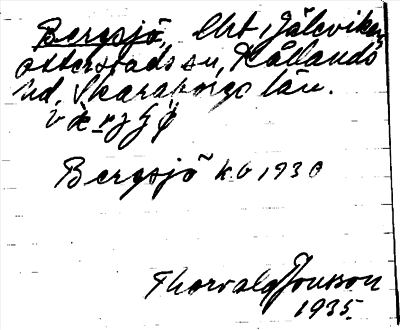 Bergsjö, Ört, Jäleviken
otterstads sn, Kållands
hd, Skaraborgs län.
Bergsjö kb 1930
Thorvald Jonsson
1935.